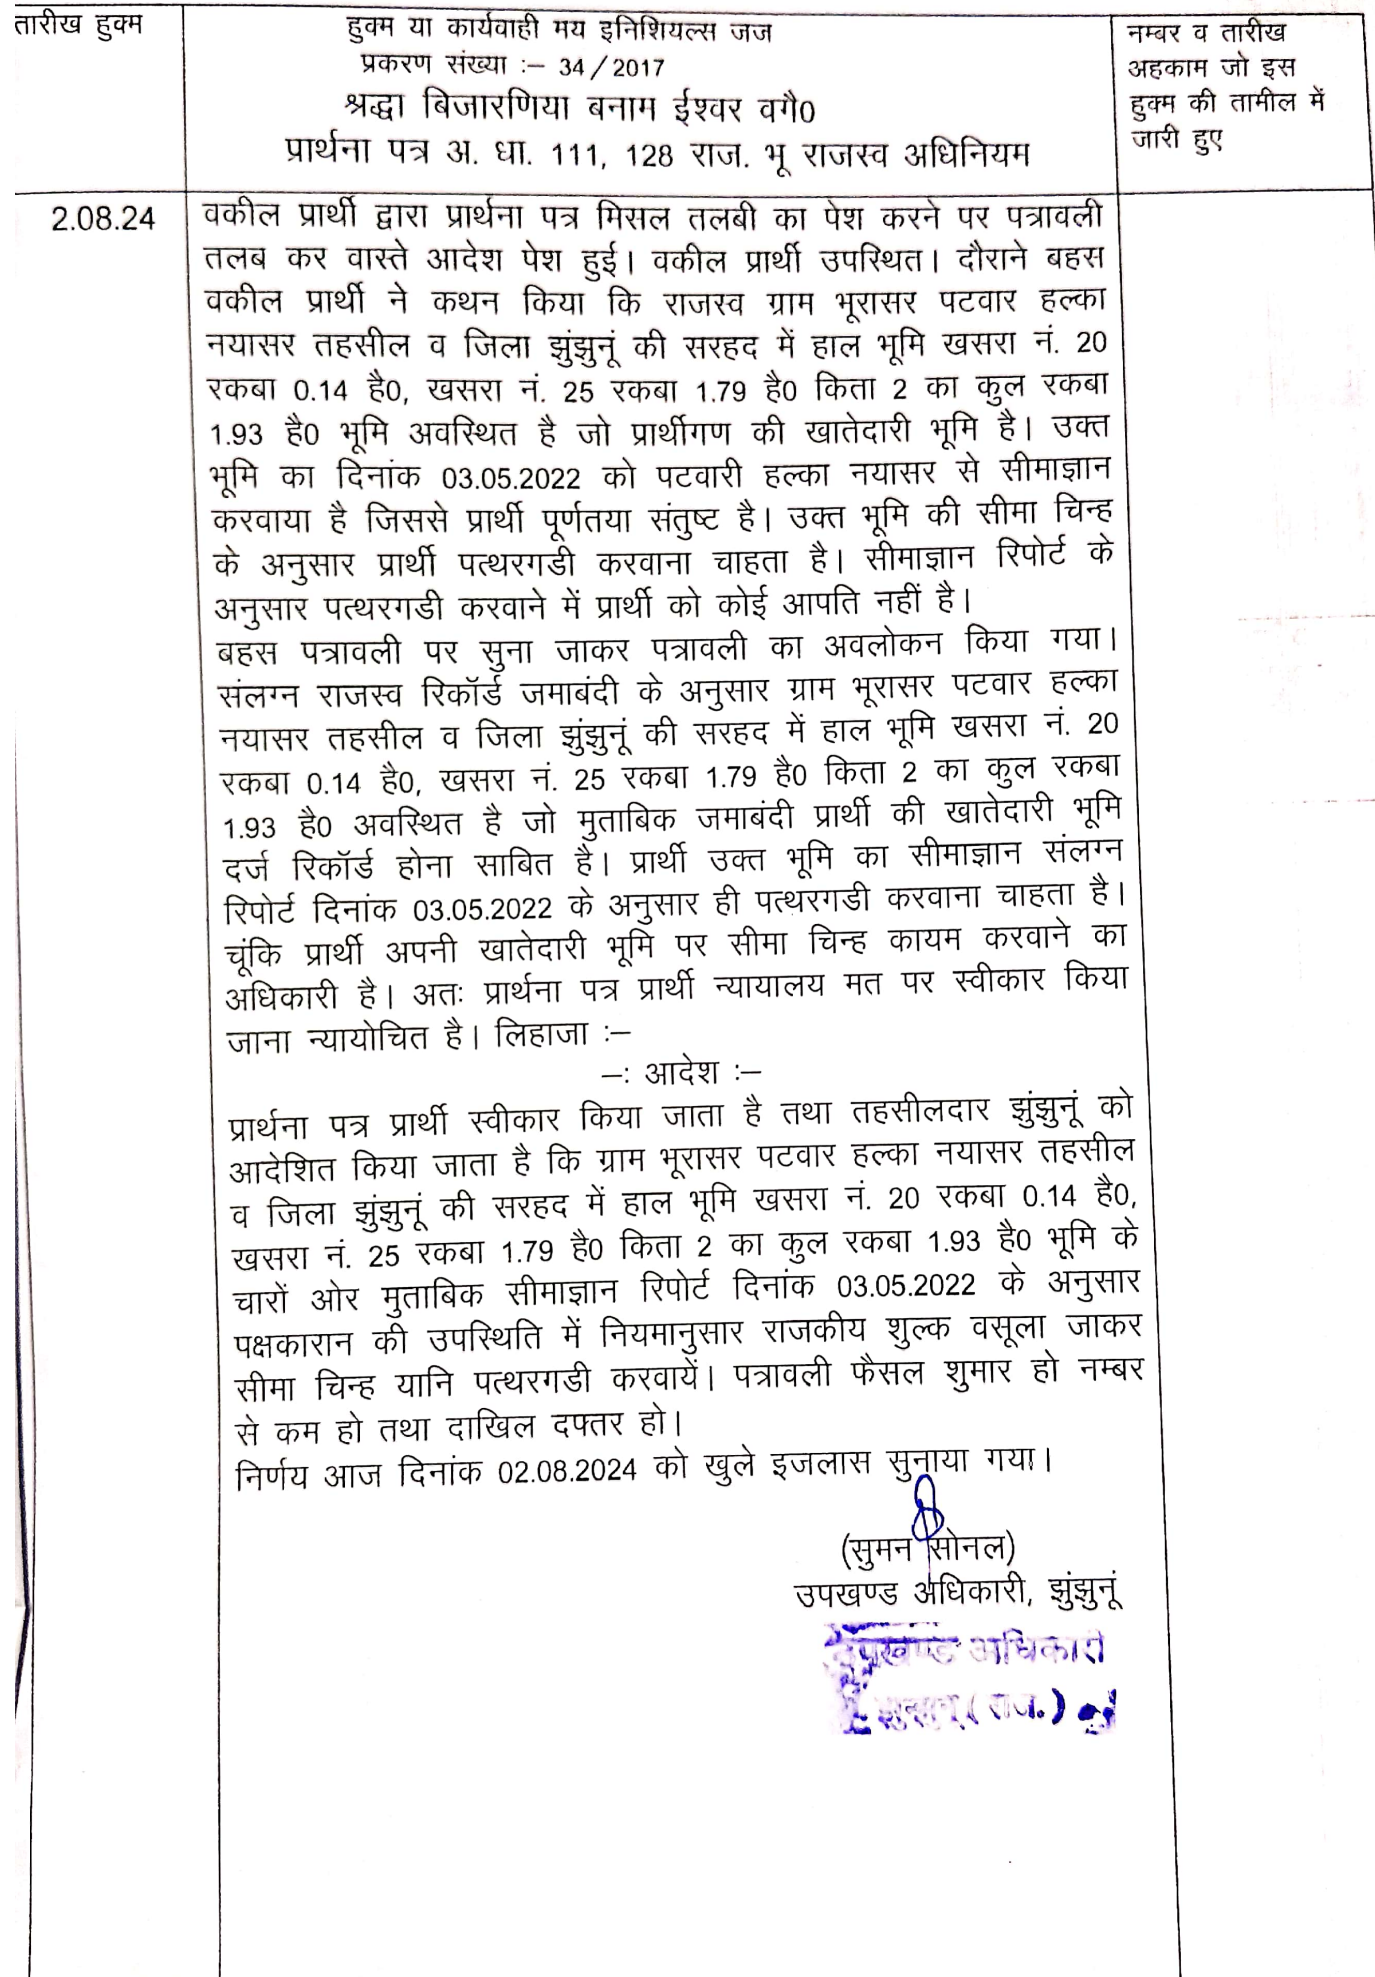 तारीख हुक्म
हुक्म या कार्यवाही मय इनिशियल्स जज
प्रकरण संख्या :– 34/2017
श्रद्धा बिजारणिया बनाम ईश्वर वगै0
प्रार्थना पत्र अ. धा. 111, 128 राज. भू राजस्व अधिनियम
नम्बर व तारीख
अहकाम जो इस
हुक्म की तामील में
जारी हुए
2.08.24
वकील प्रार्थी द्वारा प्रार्थना पत्र मिसल तलबी का पेश करने पर पत्रावली
तलब कर वास्ते आदेश पेश हुई। वकील प्रार्थी उपस्थित। दौराने बहस
वकील प्रार्थी ने कथन किया कि राजस्व ग्राम भूरासर पटवार हल्का
नयासर तहसील व जिला झुंझुनूं की सरहद में हाल भूमि खसरा नं. 20
रकबा 0.14 है0, खसरा नं. 25 रकबा 1.79 है0 किता 2 का कुल रकबा
1.93 है0 भूमि अवस्थित है जो प्रार्थीगण की खातेदारी भूमि है। उक्त
भूमि का दिनांक 03.05.2022 को पटवारी हल्का नयासर से सीमाज्ञान
करवाया है जिससे प्रार्थी पूर्णतया संतुष्ट है। उक्त भूमि की सीमा चिन्ह
के अनुसार प्रार्थी पत्थरगडी करवाना चाहता है। सीमाज्ञान रिपोर्ट के
अनुसार पत्थरगडी करवाने में प्रार्थी को कोई आपति नहीं है।
बहस पत्रावली पर सुना जाकर पत्रावली का अवलोकन किया गया।
संलग्न राजस्व रिकॉर्ड जमाबंदी के अनुसार ग्राम भूरासर पटवार हल्का
नयासर तहसील व जिला झुंझुनूं की सरहद में हाल भूमि खसरा नं. 20
रकबा 0.14 है0, खसरा नं. 25 रकबा 1.79 है0 किता 2 का कुल रकबा
1.93 है0 अवस्थित है जो मुताबिक जमाबंदी प्रार्थी की खातेदारी भूमि
दर्ज रिकॉर्ड होना साबित है। प्रार्थी उक्त भूमि का सीमाज्ञान संलग्न
रिपोर्ट दिनांक 03.05.2022 के अनुसार ही पत्थरगडी करवाना चाहता है।
चूंकि प्रार्थी अपनी खातेदारी भूमि पर सीमा चिन्ह कायम करवाने का
अधिकारी है। अतः प्रार्थना पत्र प्रार्थी न्यायालय मत पर स्वीकार किया
जाना न्यायोचित है। लिहाजा :–
–: आदेश :–
प्रार्थना पत्र प्रार्थी स्वीकार किया जाता है तथा तहसीलदार झुंझुनूं को
आदेशित किया जाता है कि ग्राम भूरासर पटवार हल्का नयासर तहसील
व जिला झुंझुनूं की सरहद में हाल भूमि खसरा नं. 20 रकबा 0.14 है0,
खसरा नं. 25 रकबा 1.79 है0 किता 2 का कुल रकबा 1.93 है0 भूमि के
चारों ओर मुताबिक सीमाज्ञान रिपोर्ट दिनांक 03.05.2022 के अनुसार
पक्षकारान की उपस्थिति में नियमानुसार राजकीय शुल्क वसूला जाकर
सीमा चिन्ह यानि पत्थरगडी करवायें। पत्रावली फैसल शुमार हो नम्बर
से कम हो तथा दाखिल दफ्तर हो।
निर्णय आज दिनांक 02.08.2024 को खुले इजलास सुनाया गया।
(सुमन सोनल)
उपखण्ड अधिकारी, झुंझुनूं
उपखण्ड अधिकारी
झुन्झुनू (राज.)